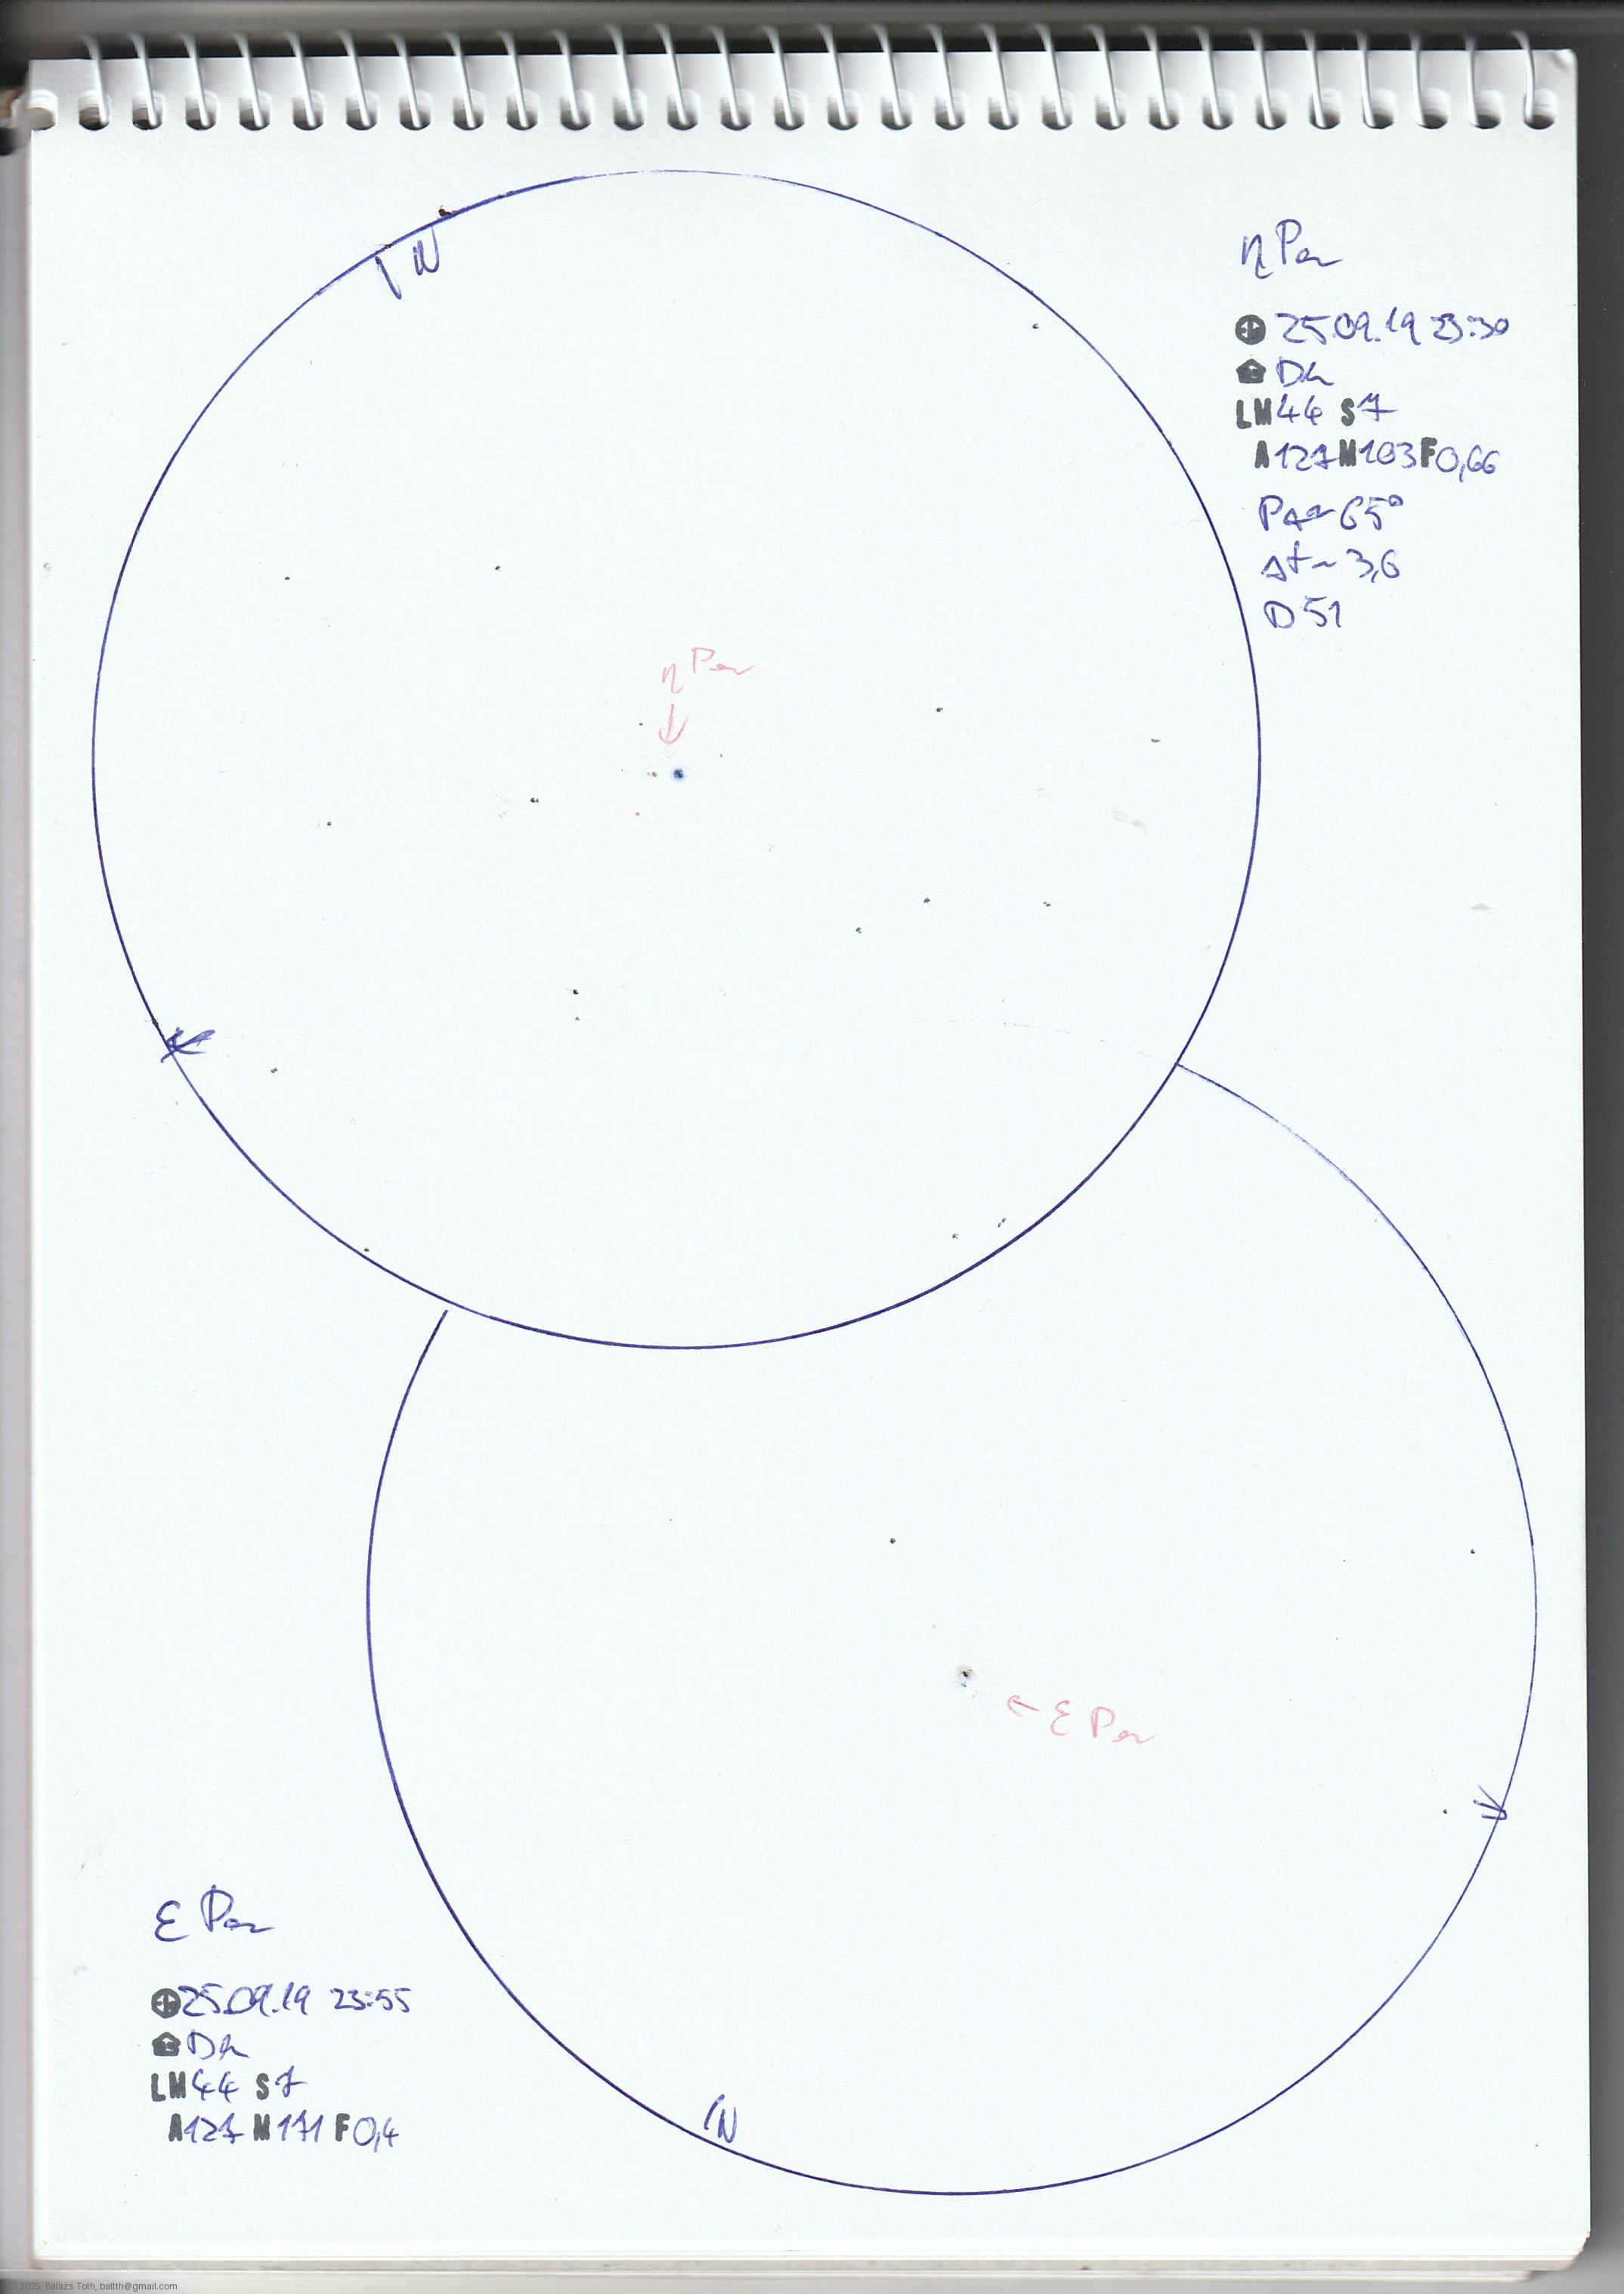 N
η Per
25.09.19 23:30
Dk
LM 44 S 7
A 127 M 103 F 0,66
PA~65°
Δt~3,6
D 51
η Per
ε Per
ε Per
25.09.19 23:55
Dk
LM 44 S 7
A 127 M 171 F 0,4
N
© 2025, Balazs Toth, baltth@gmail.com